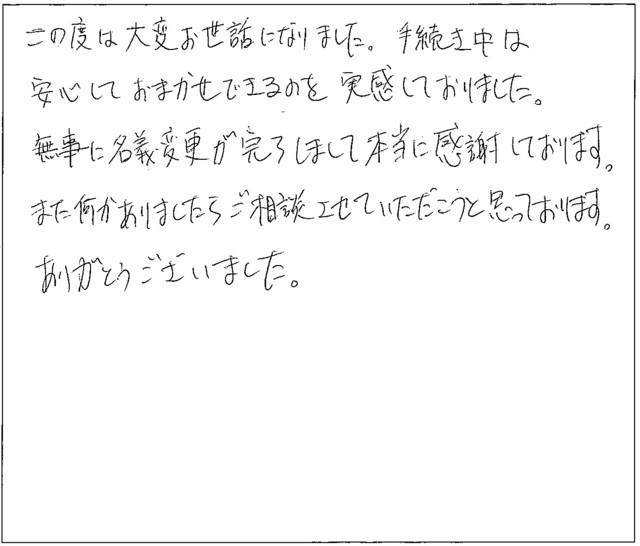 この度は大変お世話になりました。手続き中は
安心しておまかせできるのを実感しておりました。
無事に名義変更が完了しまして本当に感謝しております。
また何かありましたらご相談させていただこうと思っております。
ありがとうございました。